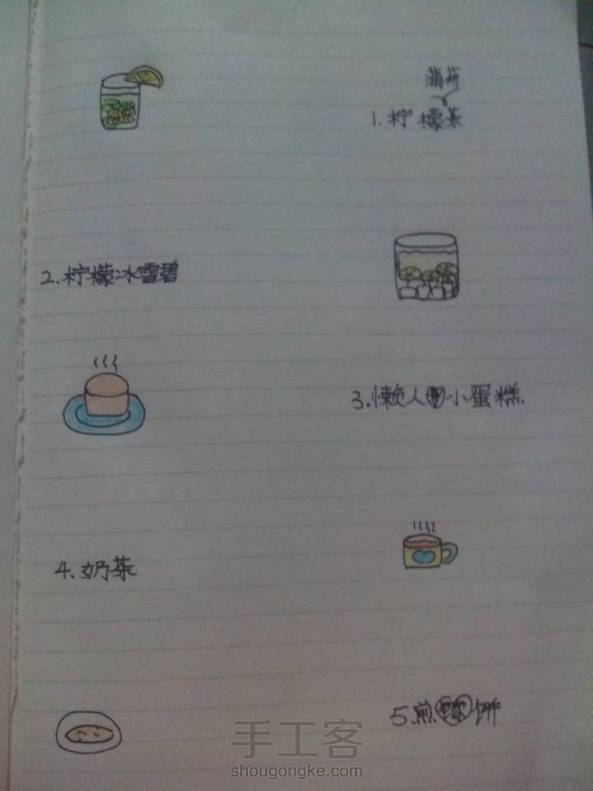 薄荷
1.柠檬茶
2.柠檬冰雪碧
3.懒人小蛋糕
4.奶茶
5.煎饼
手工客
shougongke.com